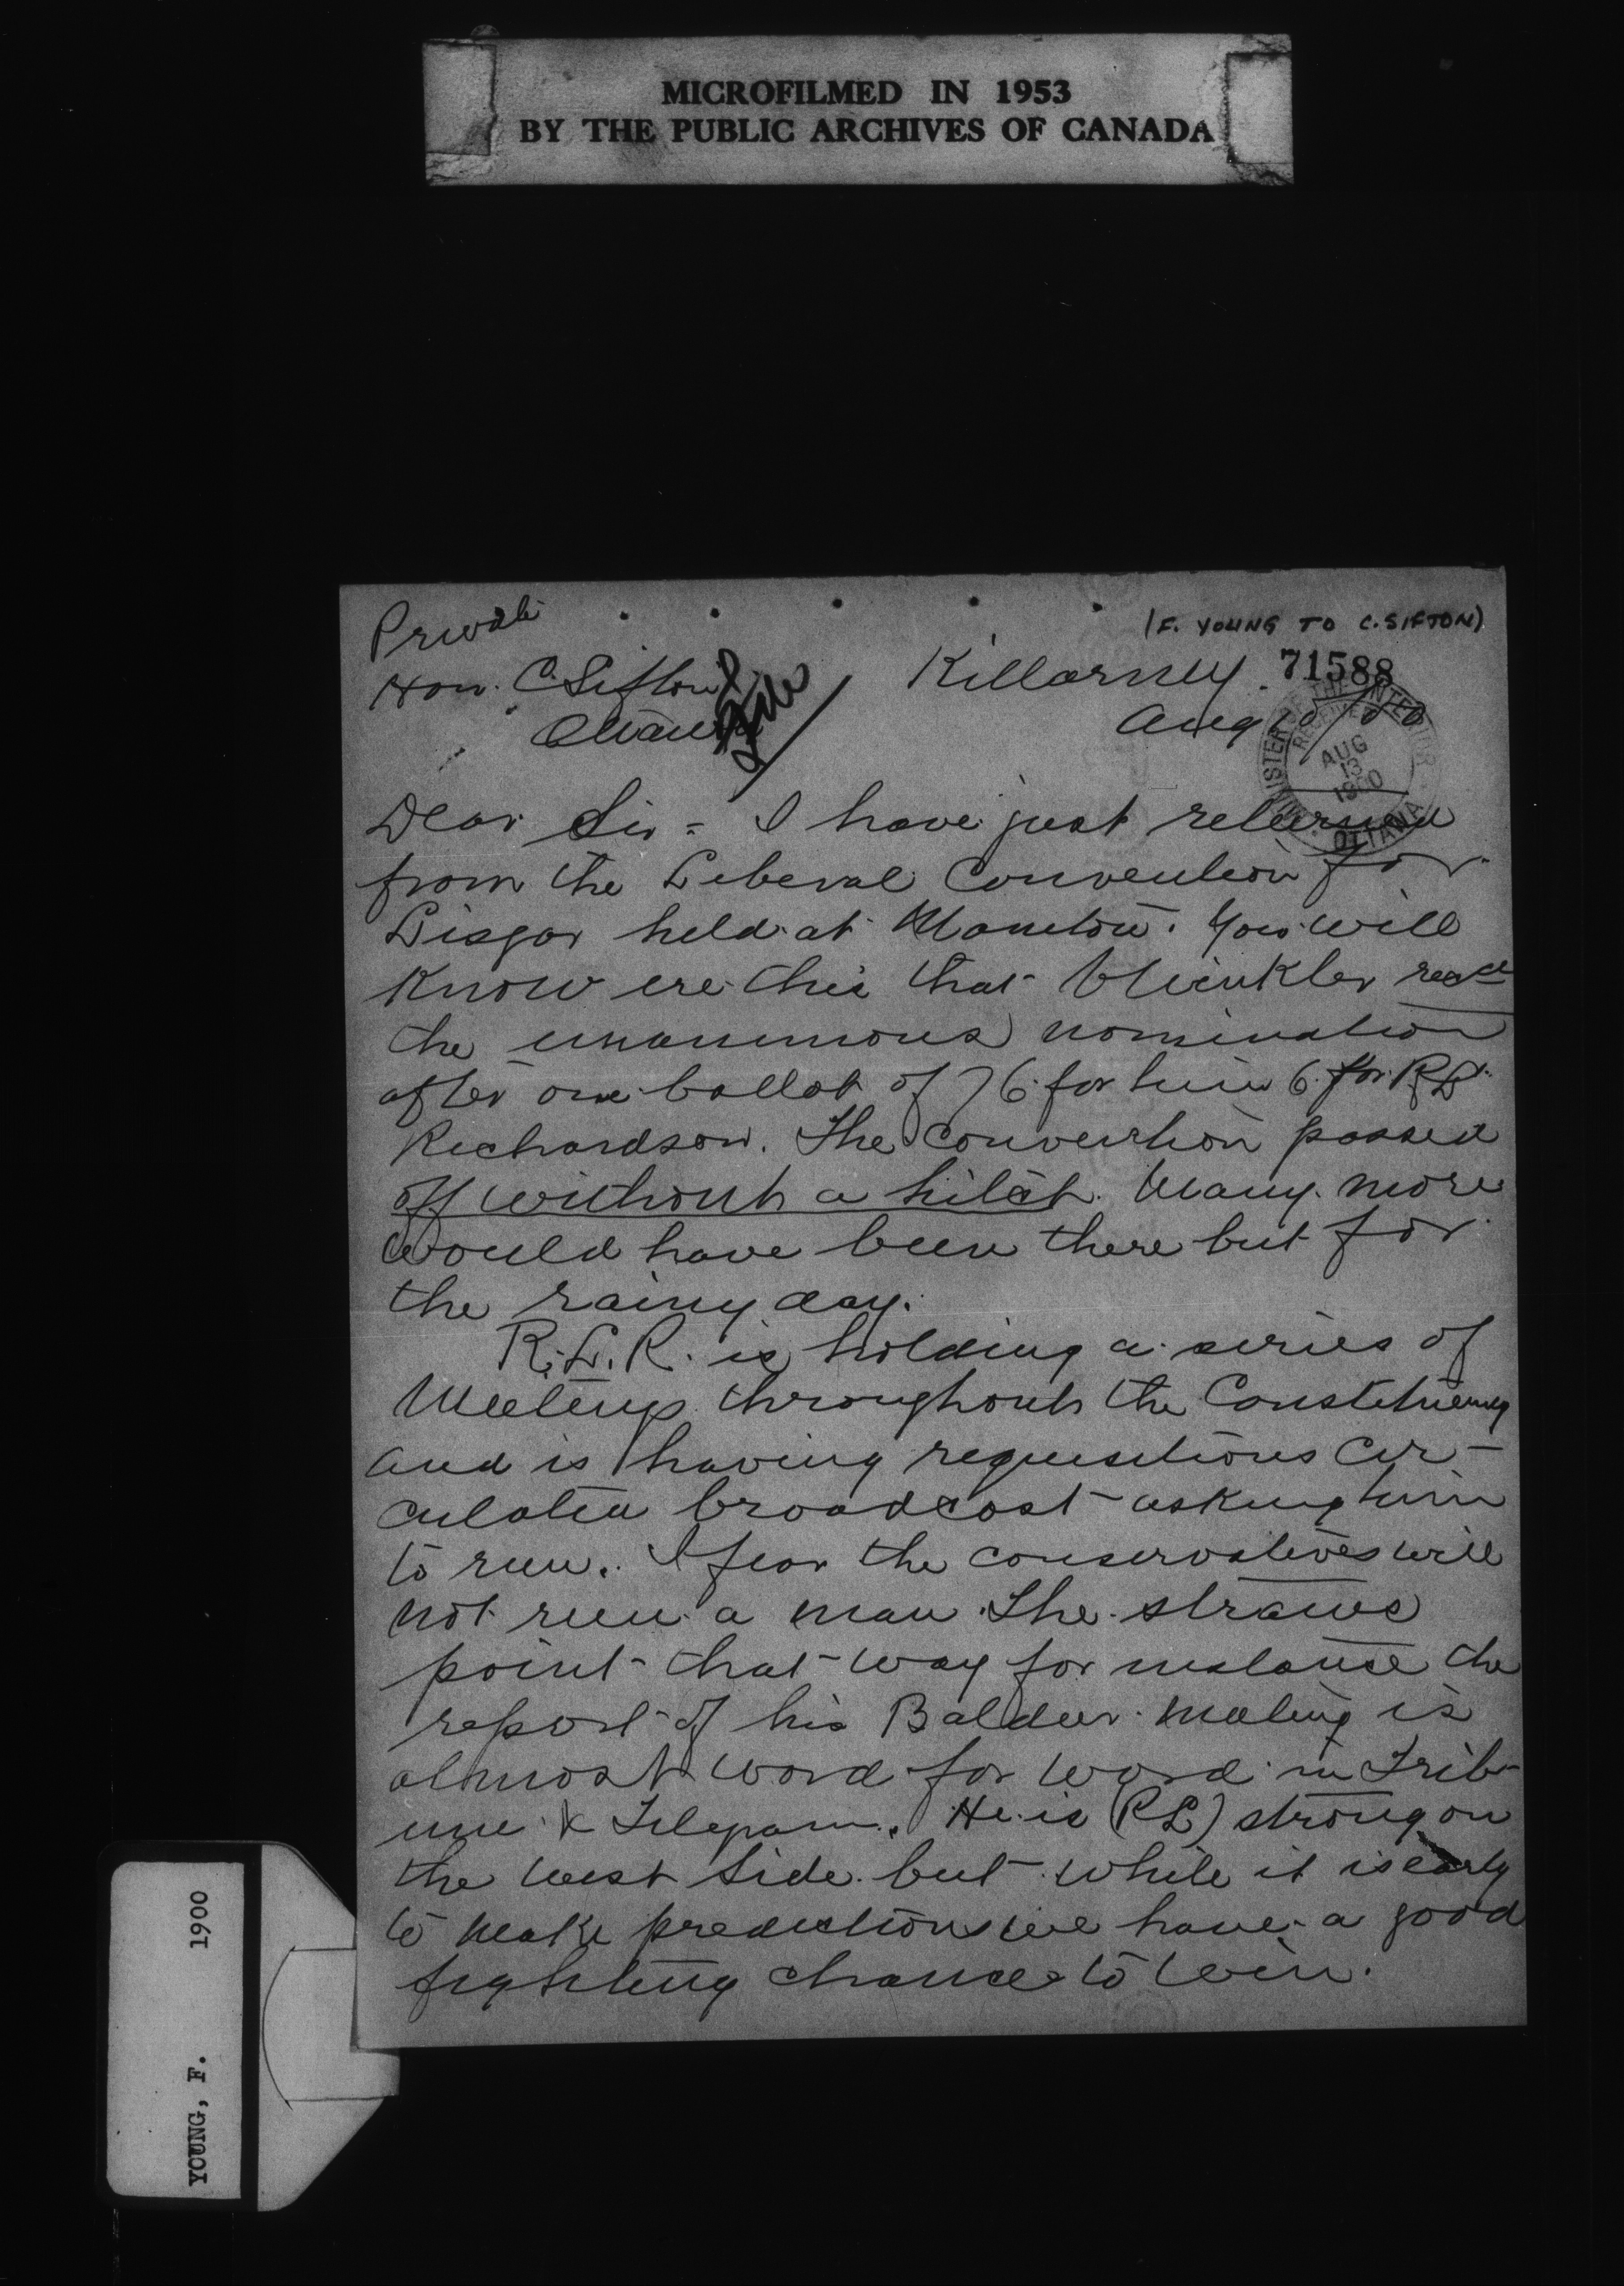 MICROFILMED IN 1953
BY THE PUBLIC ARCHIVES OF CANADA
Private
(F. YOUNG TO C. SIFTON)
Hon. C. Sifton
Ottawa
File
Killarney
71588
Aug 10/00
MINISTER OF THE INTERIOR
RECEIVED
AUG
13
1900
OTTAWA
Dear Sir - I have just returned
from the Liberal Convention for
Lisgar held at Manitou. You will
know ere this that Winkler recd
the unanimous nomination
after one ballot of 76 for him 6 for R.L.
Richardson. The Convention passed
off without a hitch. Many more
would have been there but for
the rainy day.
R.L.R. is holding a series of
Meetings throughout the Constituency
and is having requisitions cir-
culated broadcast asking him
to run. I fear the conservatives will
not run a man. The straws
point that way for instance the
report of his Baldur meeting is
almost word for word in Trib-
une & Telegram. He is (RL) strong on
the west side but while it is early
to make predictions we have a good
fighting chance to win.
YOUNG, F. 1900